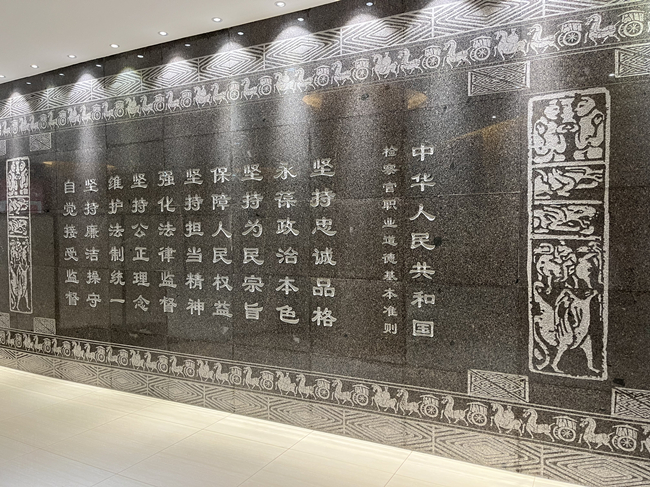 中华人民共和国
检察官职业道德基本准则
坚持忠诚品格
永葆政治本色
坚持为民宗旨
保障人民权益
坚持担当精神
强化法律监督
坚持公正理念
维护法制统一
坚持廉洁操守
自觉接受监督